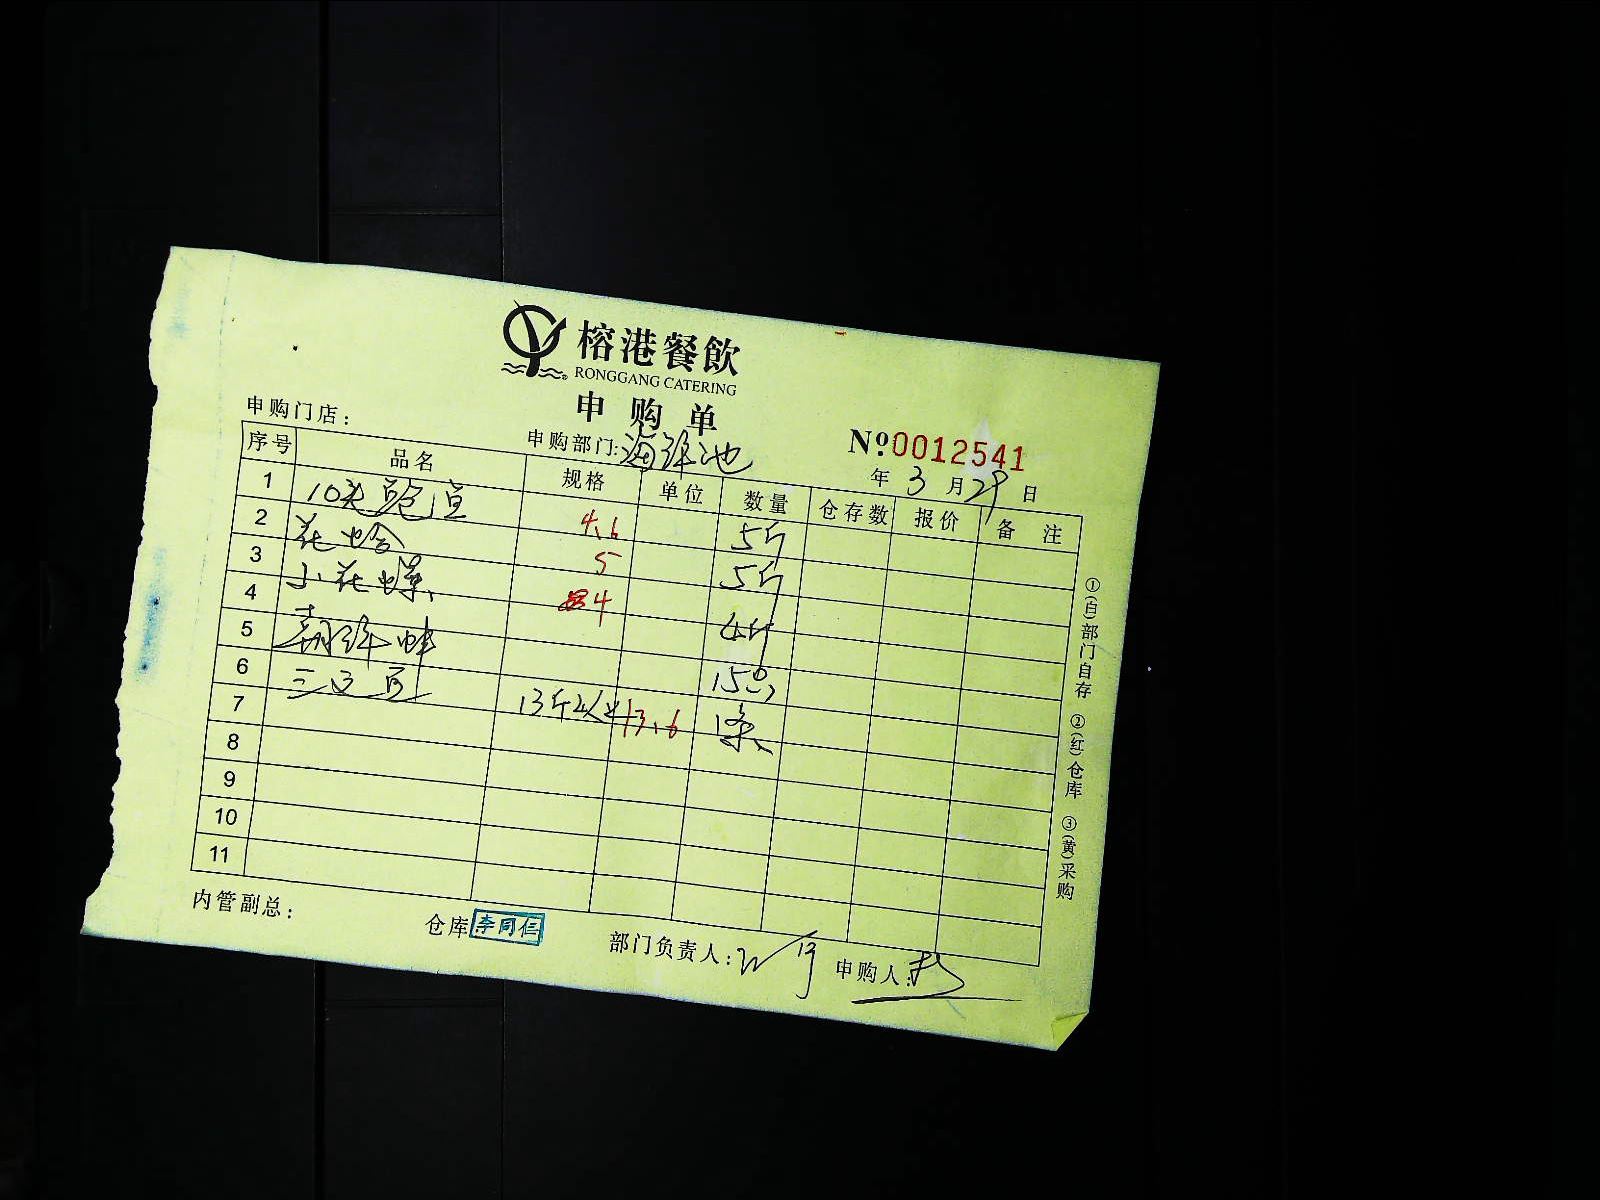 榕港餐飲
RONGGANG CATERING
申购单
申购门店：
申购部门：海鲜池
Nº0012541
年3月29日
序号 品名 规格 单位 数量 仓存数 报价 备注
1 10头鲍鱼 4.6 5斤
2 花蛤 5 5斤
3 小花螺 4 4斤
4
5 15只
6 13斤以 13.6 1条
7
8
9
10
11
①(白)部门自存 ②(红)仓库 ③(黄)采购
内管副总：
仓库：李同仁
部门负责人：
申购人：